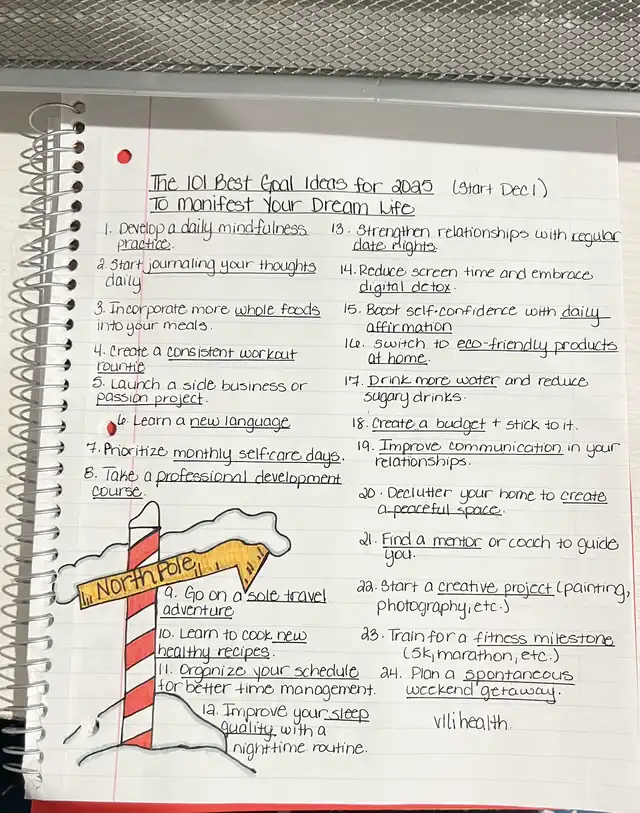 The 101 Best Goal Ideas for 2025 (Start Dec 1)
To Manifest Your Dream Life
1. Develop a daily mindfulness
practice.
2. Start journaling your thoughts
daily
3. Incorporate more whole foods
into your meals.
4. Create a consistent workout
rountie
5. Launch a side business or
passion project.
6. Learn a new language
7. Prioritize monthly self-care days.
8. Take a professional development
course.
North Pole
9. Go on a sole travel
adventure
10. Learn to cook new
healthy recipes.
11. Organize your schedule
for better time management.
12. Improve your sleep
quality with a
nighttime routine.
13. Strengthen relationships with regular
date nights.
14. Reduce screen time and embrace
digital detox.
15. Boost self-confidence with daily
affirmation
16. Switch to eco-friendly products
at home.
17. Drink more water and reduce
sugary drinks.
18. Create a budget + stick to it.
19. Improve communication in your
relationships.
20. Declutter your home to create
a peaceful space.
21. Find a mentor or coach to guide
you.
22. Start a creative project (painting,
photography, etc.)
23. Train for a fitness milestone
(5K, marathon, etc.)
24. Plan a spontaneous
weekend getaway.
vllihealth